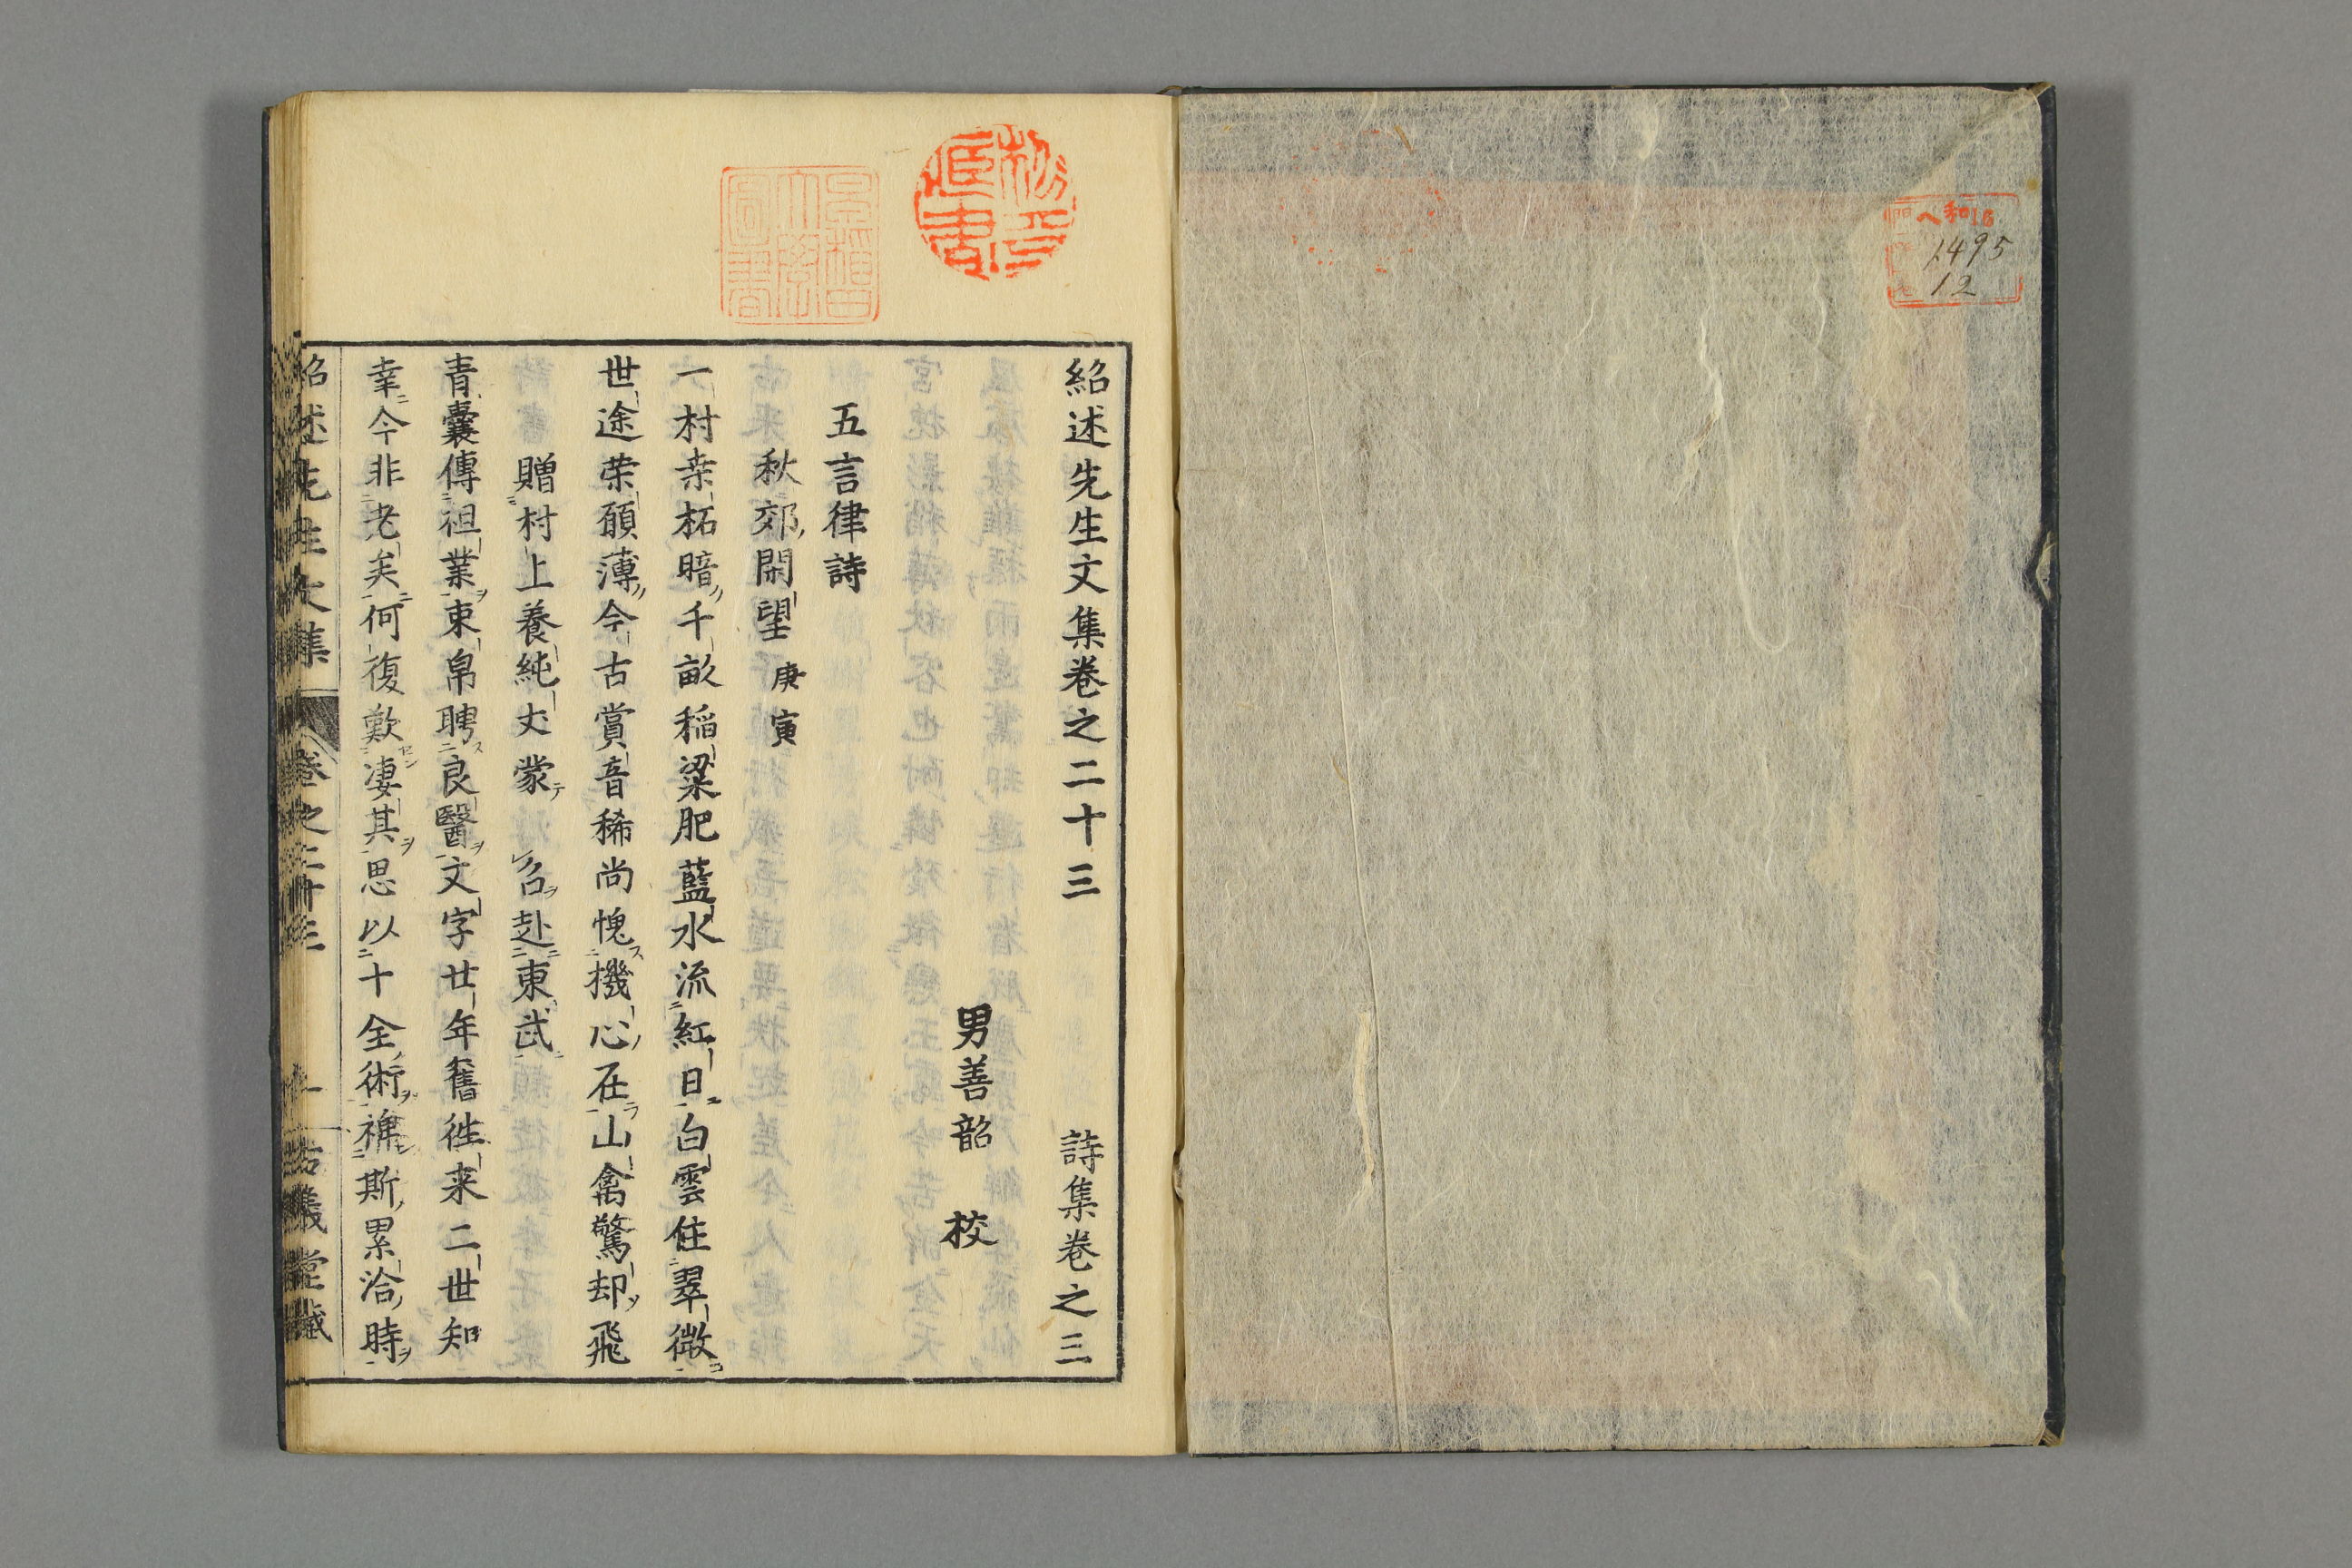 ヘ和16
1495
12
紹述先生文集卷之二十三 詩集卷之三
男善韶 校
五言律詩
秋郊閑望 庚寅
一村桒柘暗千畝稲粱肥藍水流紅日白雲住翠微
世途荣願薄今古賞音稀尚愧機心在山禽驚却飛
贈村上養純丈蒙 召赴東武
青囊傳祖業束帛聘良醫文字廿年舊徃来二世知
幸今非老矣何復歎凄其思以十全術裨斯累洽時
紹述先生文集 卷之二十三 一 古義堂藏